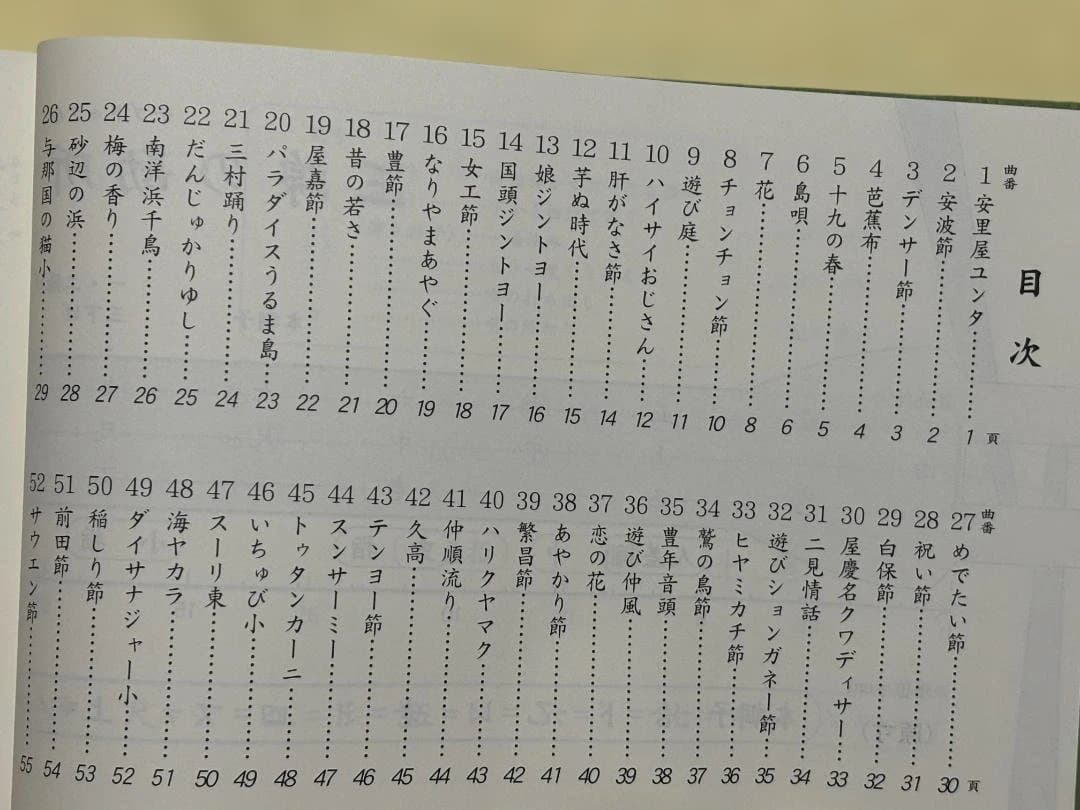 目次
曲番
1 安里屋ユンタ…………1頁
2 安波節…………2
3 デンサー節…………3
4 芭蕉布…………4
5 十九の春…………5
6 島唄…………6
7 花…………8
8 チョンチョン節…………10
9 遊び庭…………11
10 ハイサイおじさん…………12
11 肝がなさ節…………14
12 芋ぬ時代…………15
13 娘ジントヨー…………16
14 国頭ジントヨー…………17
15 女工節…………18
16 なりやまあやぐ…………19
17 豊節…………20
18 昔の若さ…………21
19 屋嘉節…………22
20 パラダイスうるま島…………23
21 三村踊り…………24
22 だんじゅかりゆし…………25
23 南洋浜千鳥…………26
24 梅の香り…………27
25 砂辺の浜…………28
26 与那国の猫小…………29
曲番
27 めでたい節…………30頁
28 祝い節…………31
29 白保節…………32
30 屋慶名クワディサー…………33
31 二見情話…………34
32 遊びションガネー節…………35
33 ヒヤミカチ節…………36
34 鷲の鳥節…………37
35 豊年音頭…………38
36 遊び仲風…………39
37 恋の花…………40
38 あやかり節…………41
39 繁昌節…………42
40 ハリクヤマク…………43
41 仲順流り…………44
42 久高…………45
43 テンヨー節…………46
44 スンサーミー…………47
45 トゥタンカーニ…………48
46 いちゅび小…………49
47 スーリ東…………50
48 海ヤカラ…………51
49 ダイサナジャー小…………52
50 稲しり節…………53
51 前田節…………54
52 サウエン節…………55